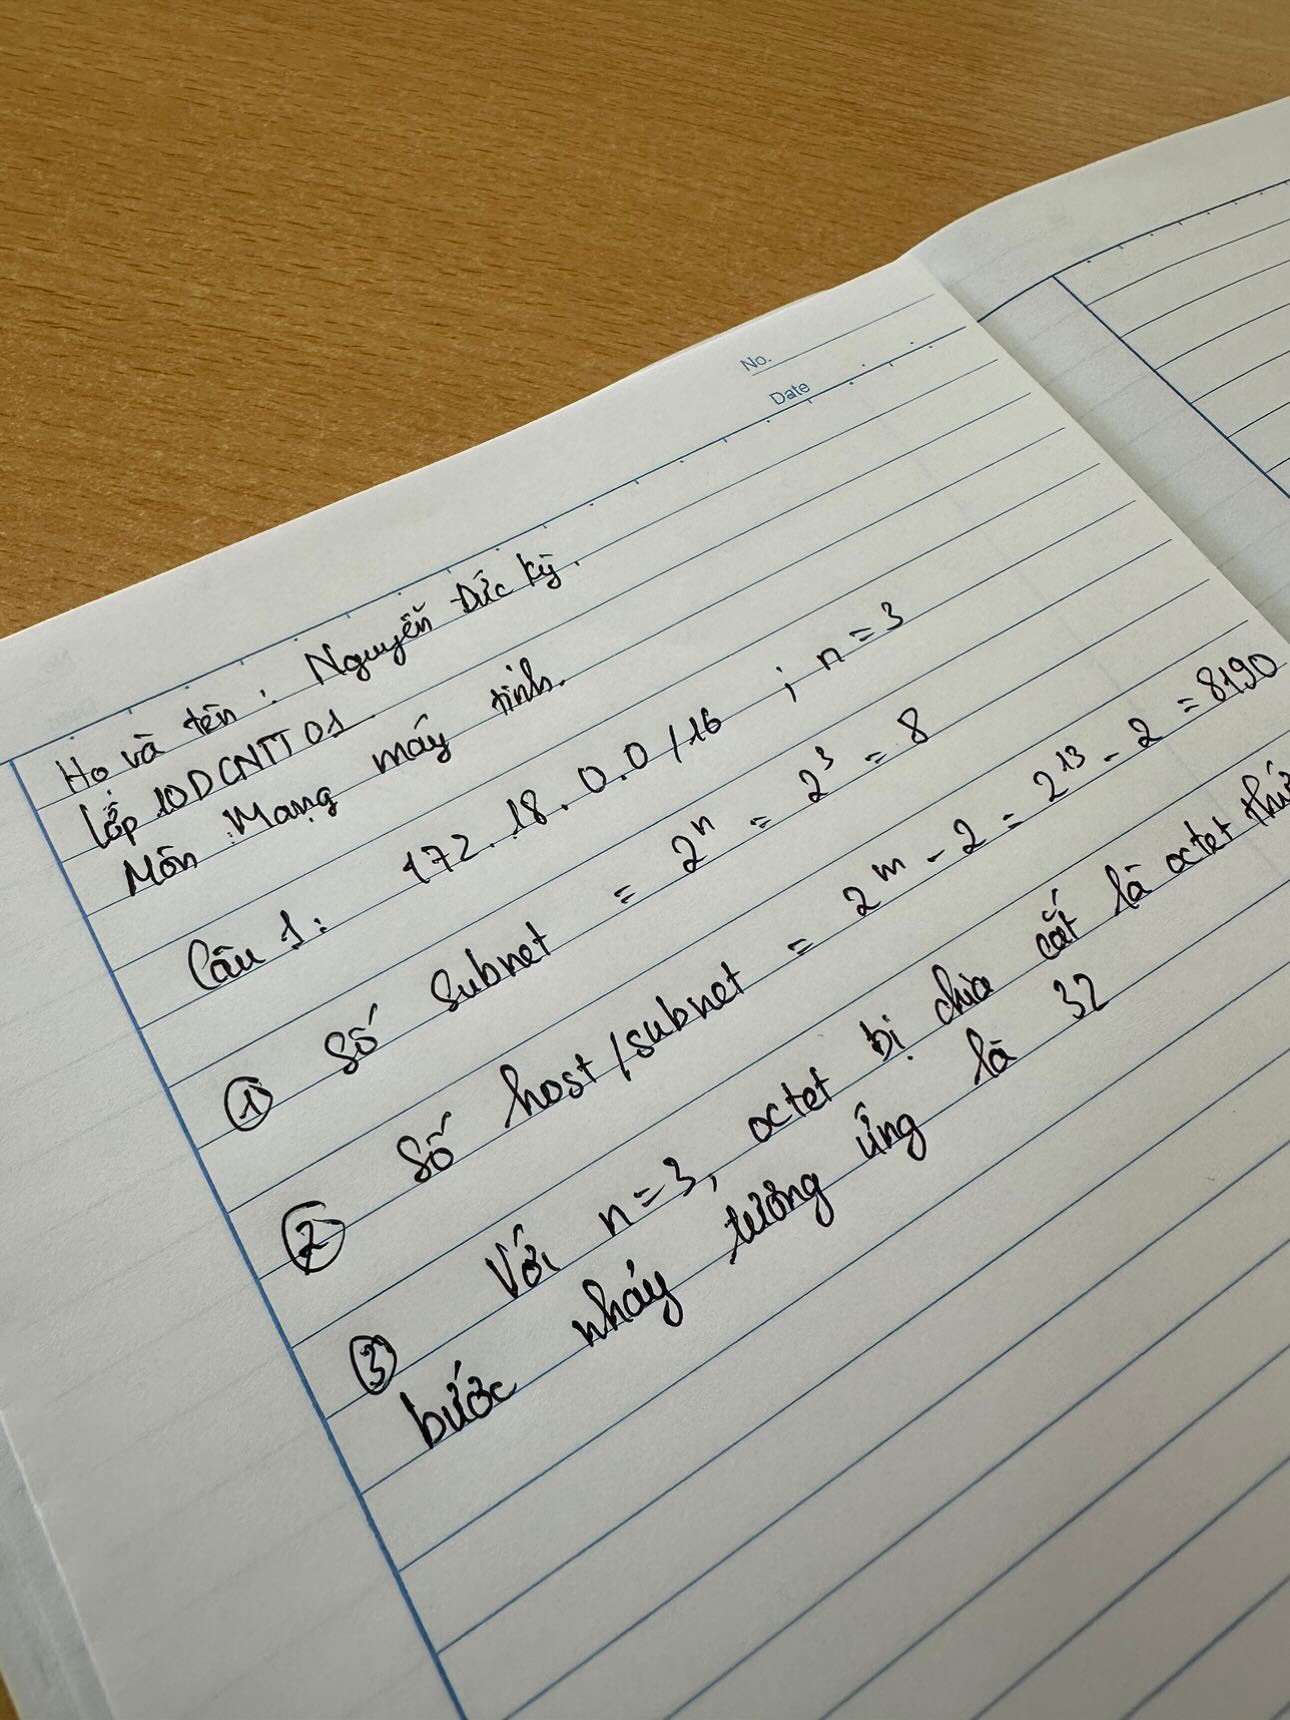 No.
Date
Họ và tên : Nguyễn Đức Kỳ.
Lớp 10DCNTT01.
Môn : Mạng máy tính.
Câu 1: 172.18.0.0/16 ; n = 3
① Số subnet = 2ⁿ = 2³ = 8
② Số host/subnet = 2ᵐ - 2 = 2¹³ - 2 = 8190
③ Với n=3, octet bị chia cắt là octet
bước nhảy tương ứng là 32